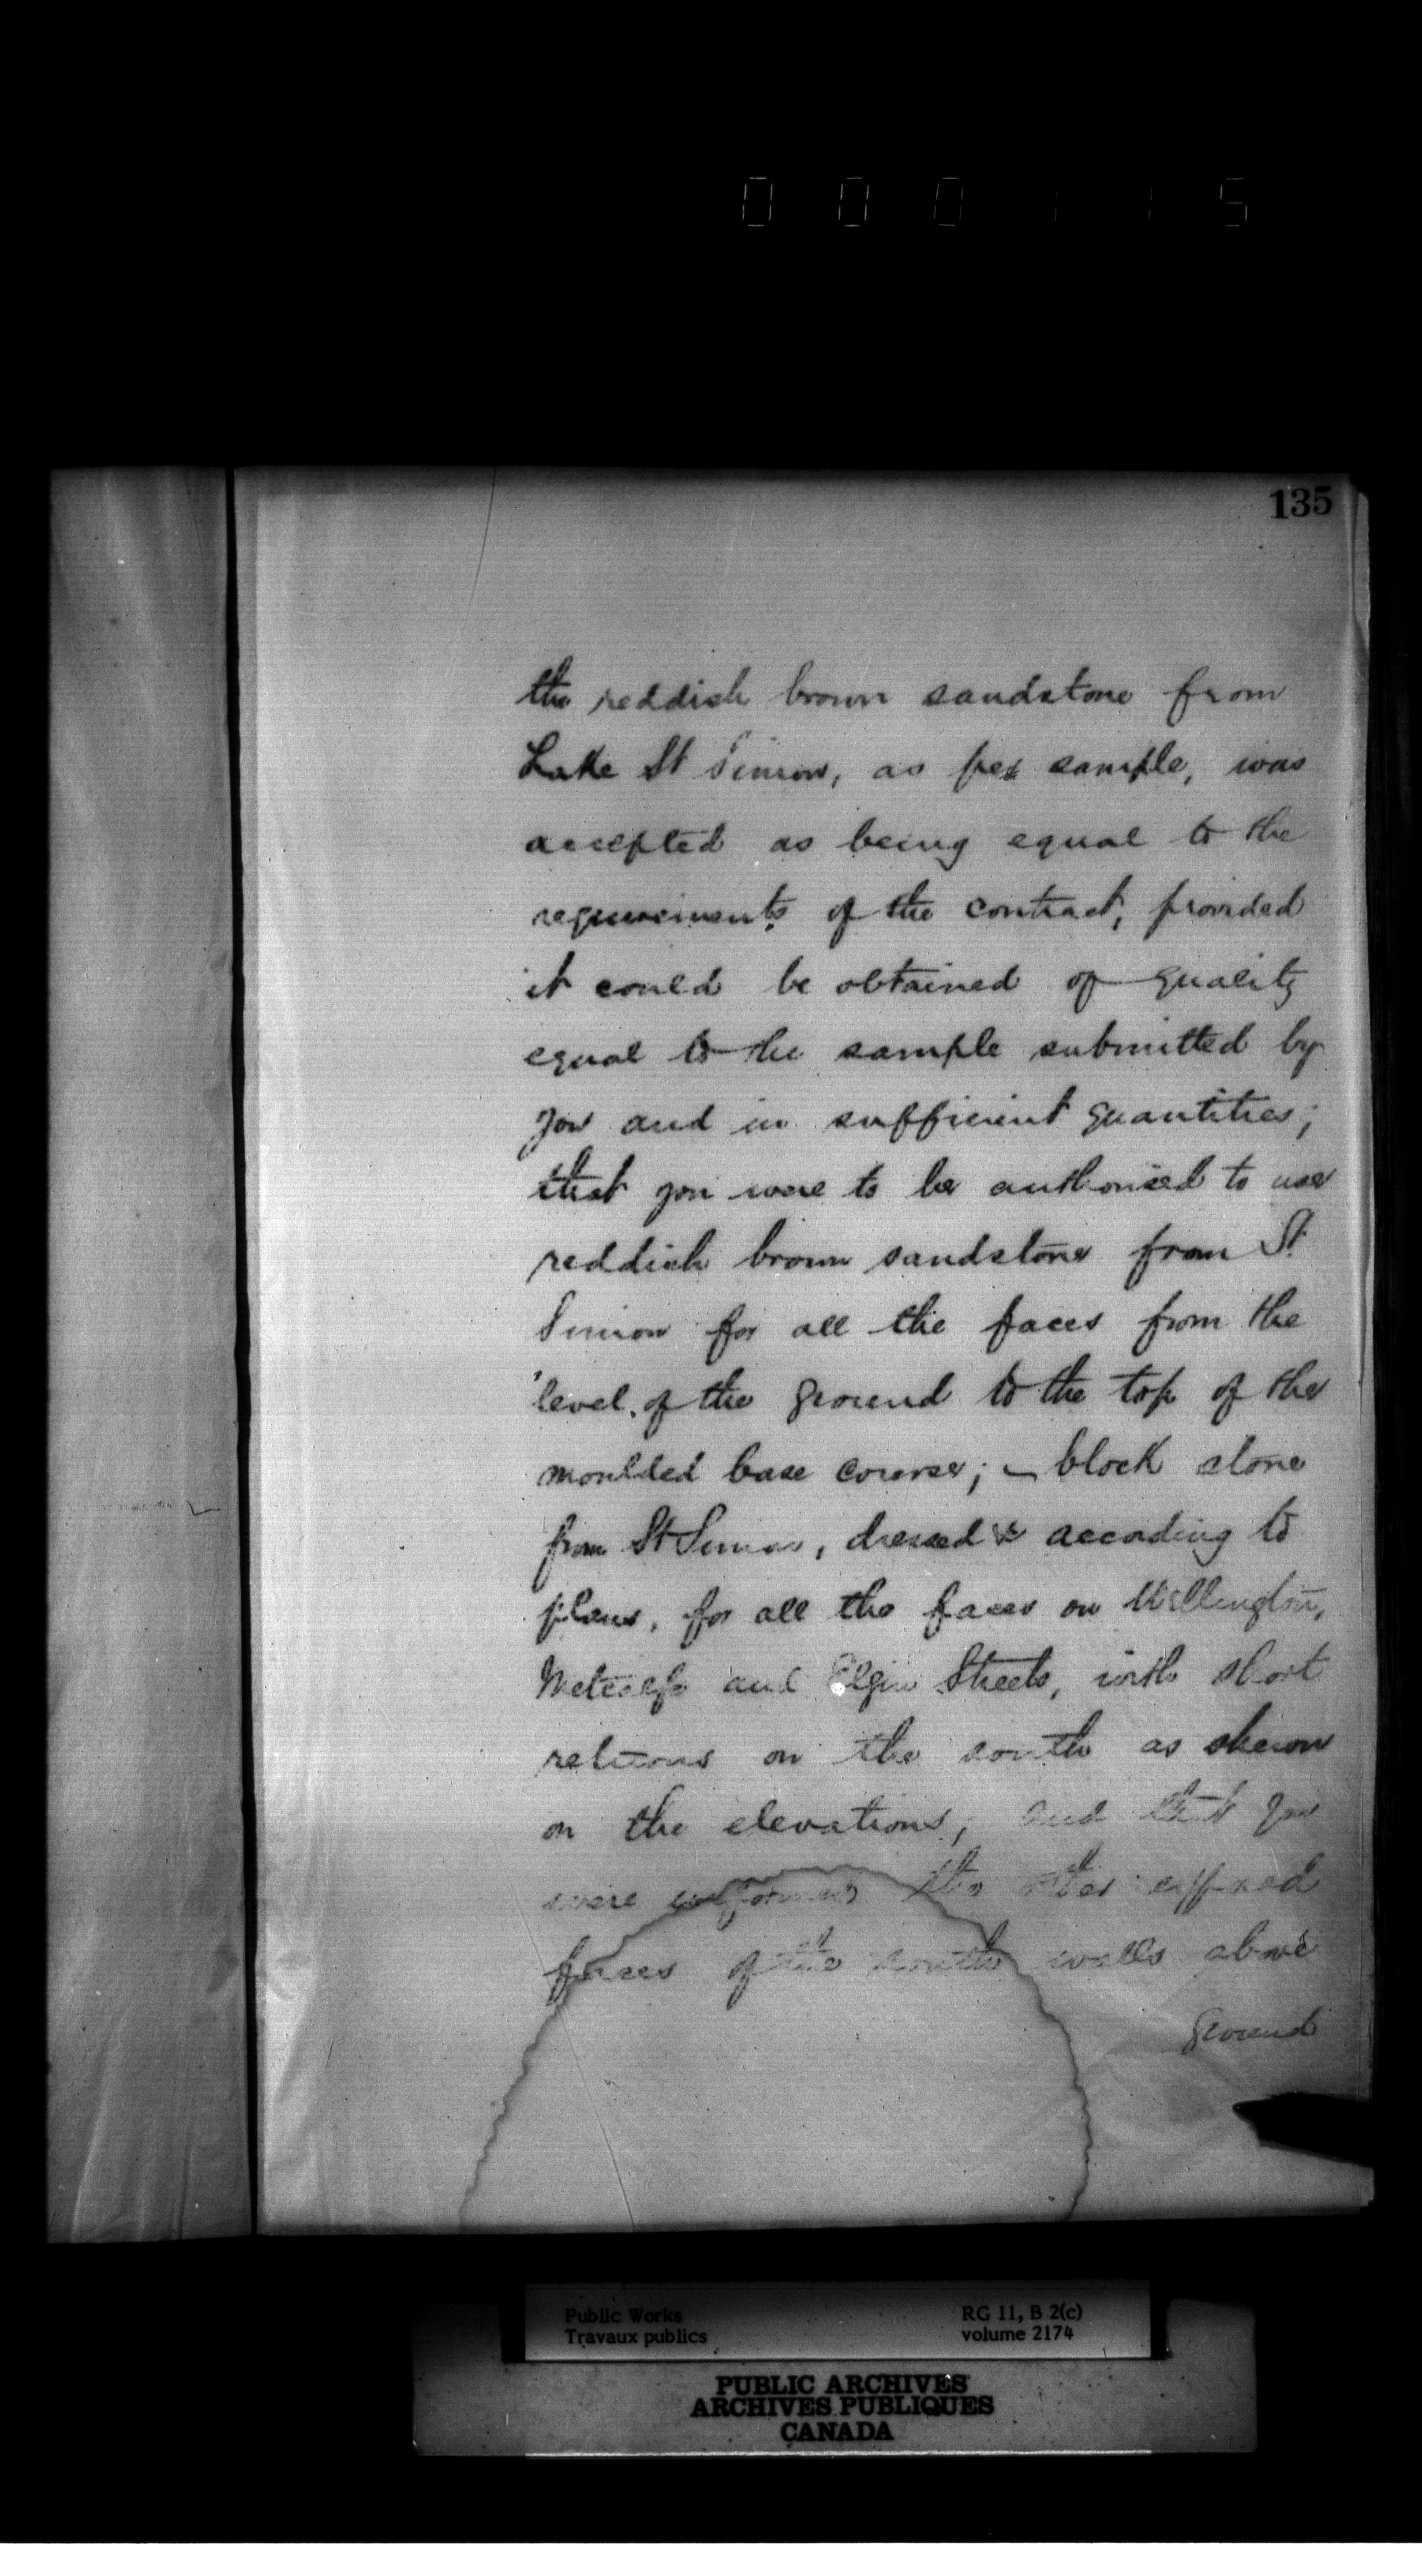 000115
135
the reddish brown sandstone from
Lake St Simon, as per sample, was
accepted as being equal to the
requirements of the contract, provided
it could be obtained of quality
equal to the sample submitted by
you and in sufficient quantities;
that you were to be authorised to use
reddish brown sandstone from St
Simon for all the faces from the
level of the ground to the top of the
moulded base course; – block stone
from St Simon, dressed & according to
plans, for all the faces on Wellington,
Metcalfe and Elgin Streets, with short
returns on the south as shewn
on the elevations; and that you
were informed the other exposed
faces of the south walls above
ground
Public Works
Travaux publics
RG 11, B 2(c)
volume 2174
PUBLIC ARCHIVES
ARCHIVES PUBLIQUES
CANADA